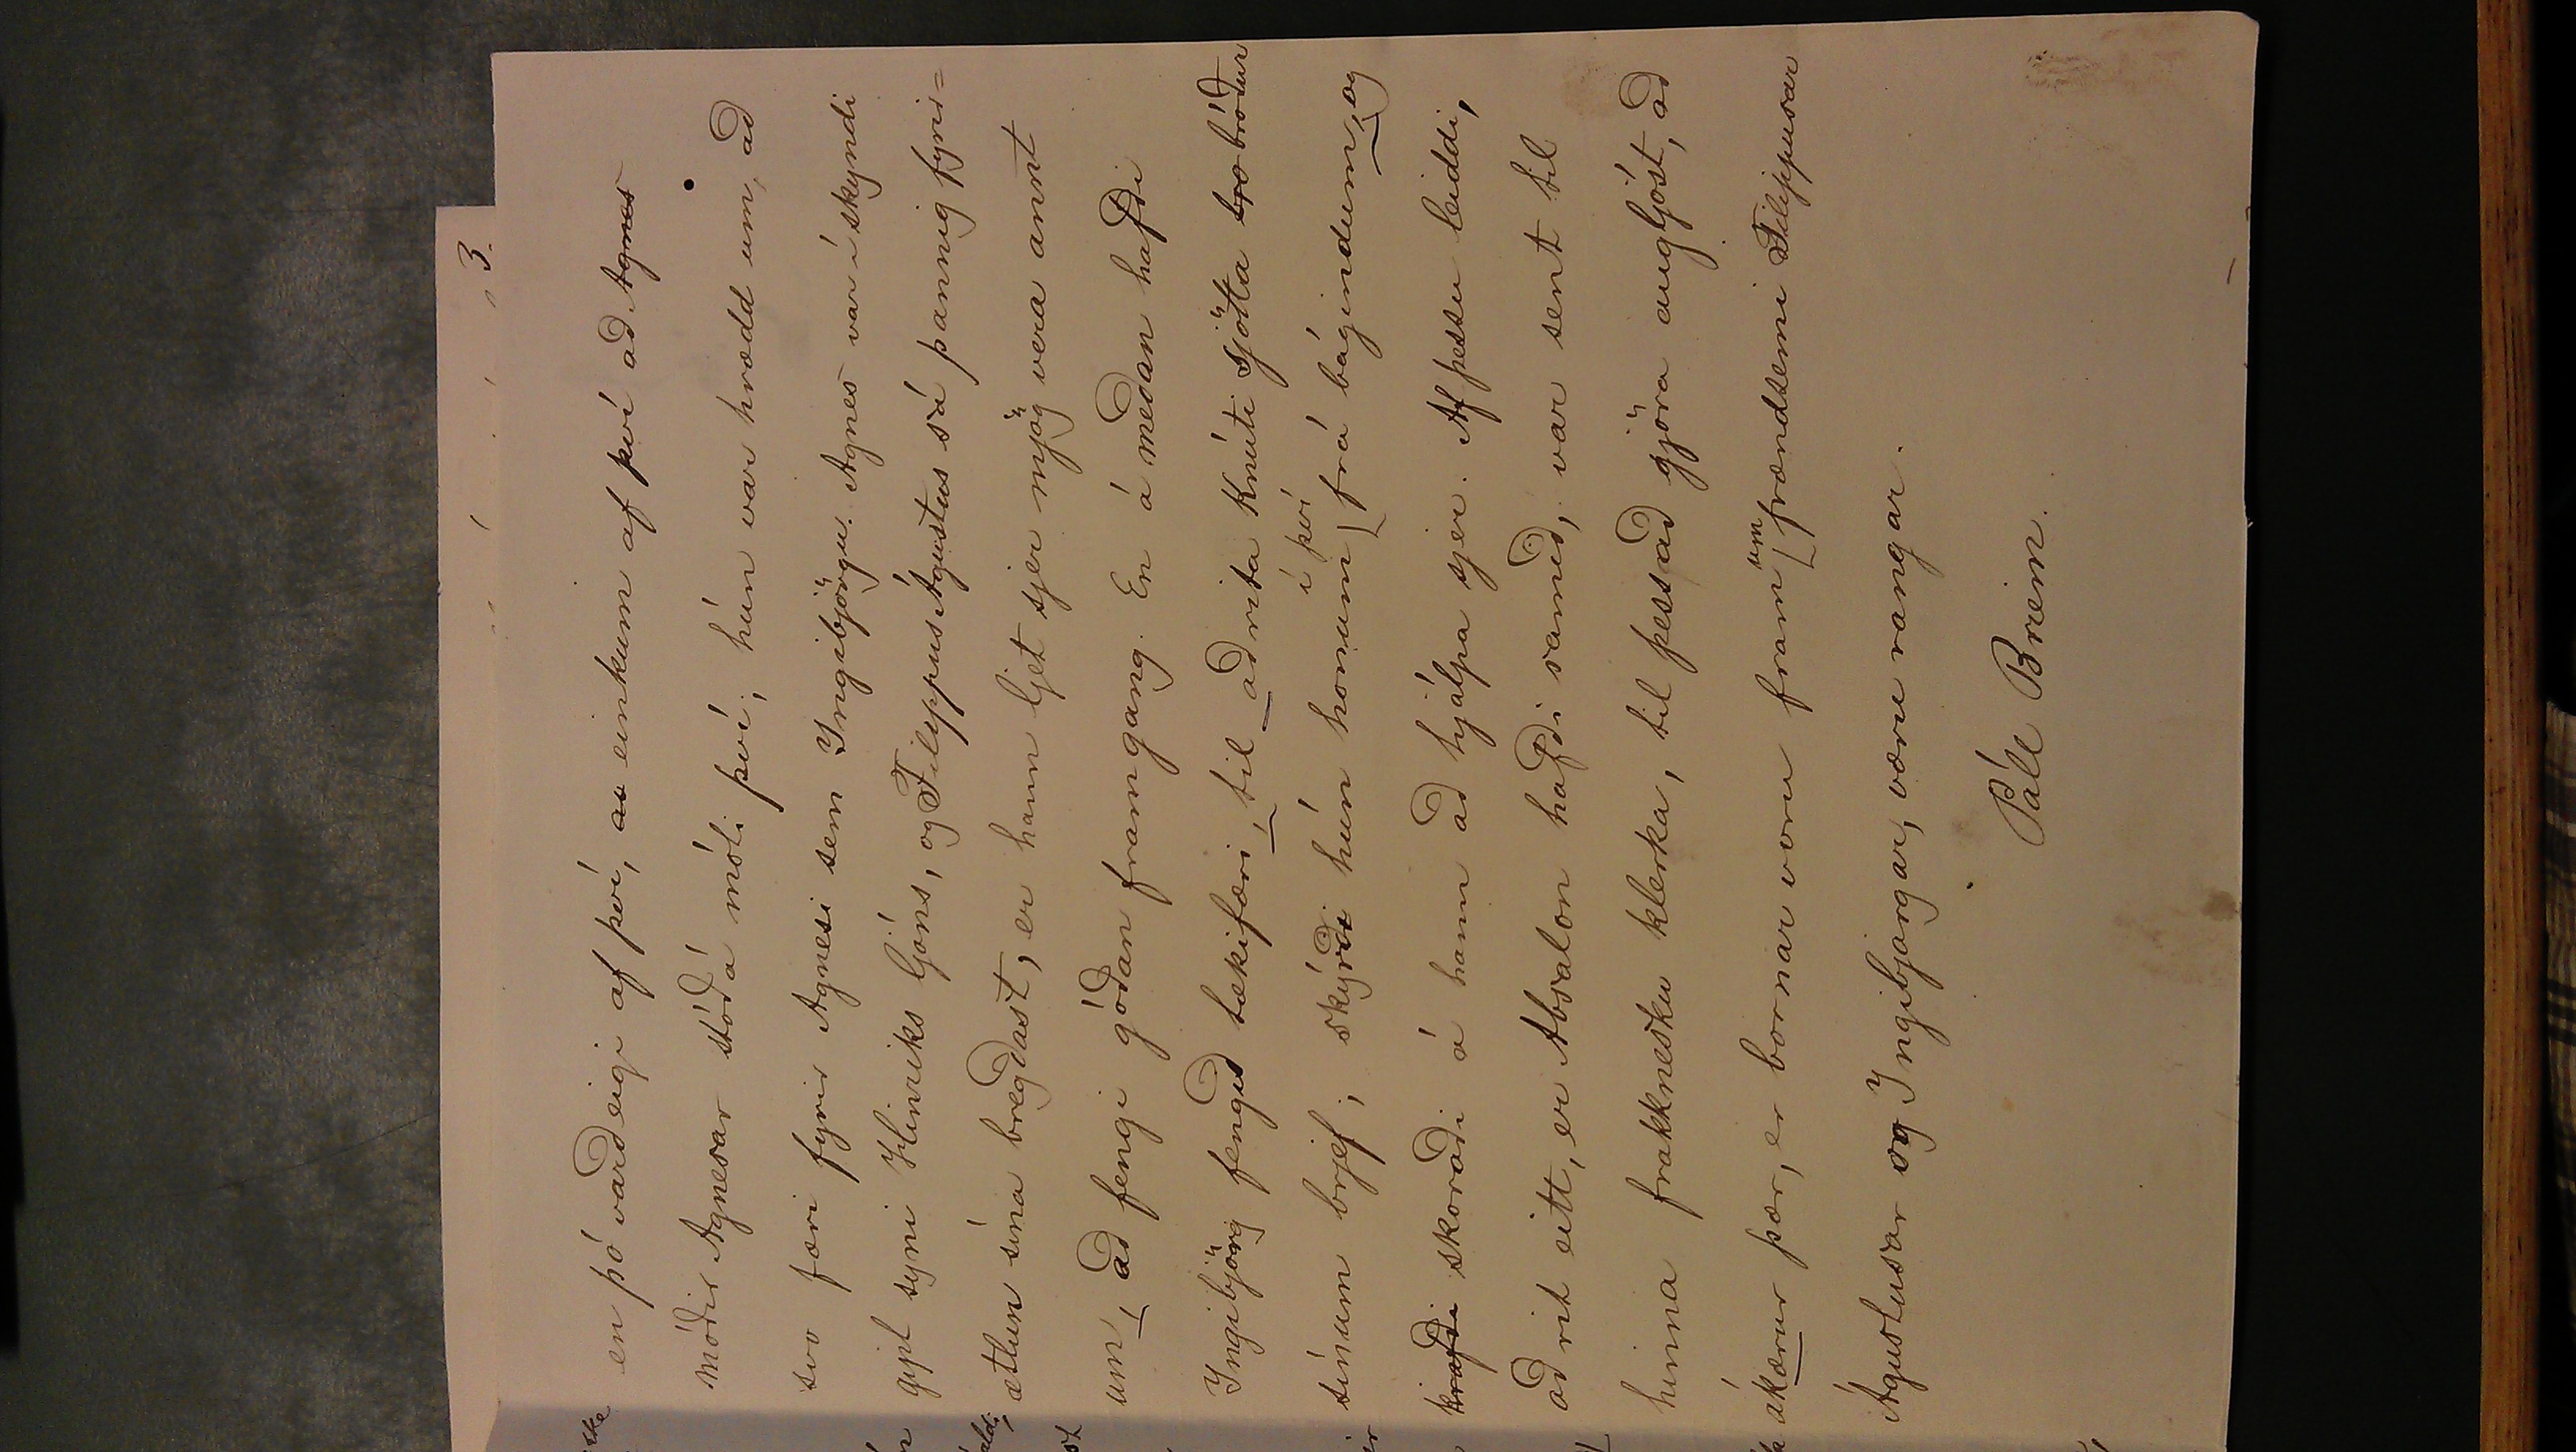 3.
en þó varð eigi af því, as einkum af því að Agnes
móðir Agnesar stóð á móti því; hún var hrædd um, að
svo færi fyrir Agnesi sem Ingibjörgu. Agnes var í skyndi
gipt syni Hinriks ljóns, og Filippus Ágústus sá þannig fyrir=
ætlun sína bregðast, er hann ljet sjer mjög vera annt
um, að fengi góðan framgang. En á meðan hafði
Ingibjörg fengið tækifæri, til að rita Knúti sjötta bro bróður
sínum brjef; skýrði hún honum í því frá bágindum, og
krafði skoraði á hann að hjálpa sjer. Af þessu leiddi,
að rit eitt, er Absalon hafði samið, var sent til
hinna frakknesku klerka, til þess að gjöra augljóst, að
ákærur þær, er bornar voru fram um frændsemi Filippusar
Ágústusar og Ingibjargar, væru rangar.
Páll Briem.